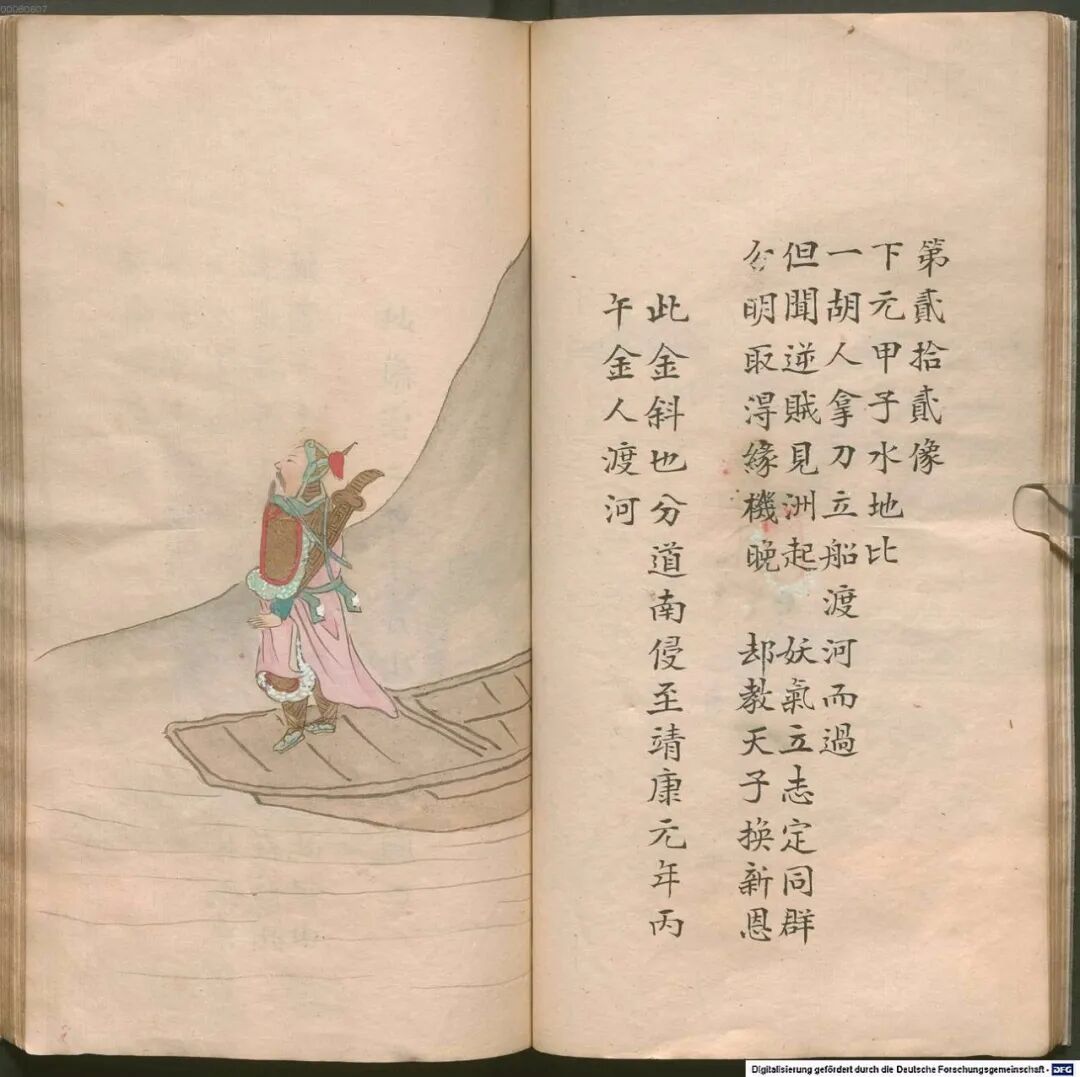 00060607
第貳拾貳像
下元甲子水地比
一胡人拿刀立船渡河而過
但聞逆賊見洲起 妖氣立志定同群
分明取得緣機晚 却教天子換新恩
此金斜也分道南侵至靖康元年丙
午金人渡河
Digitalisierung gefördert durch die Deutsche Forschungsgemeinschaft - DFG